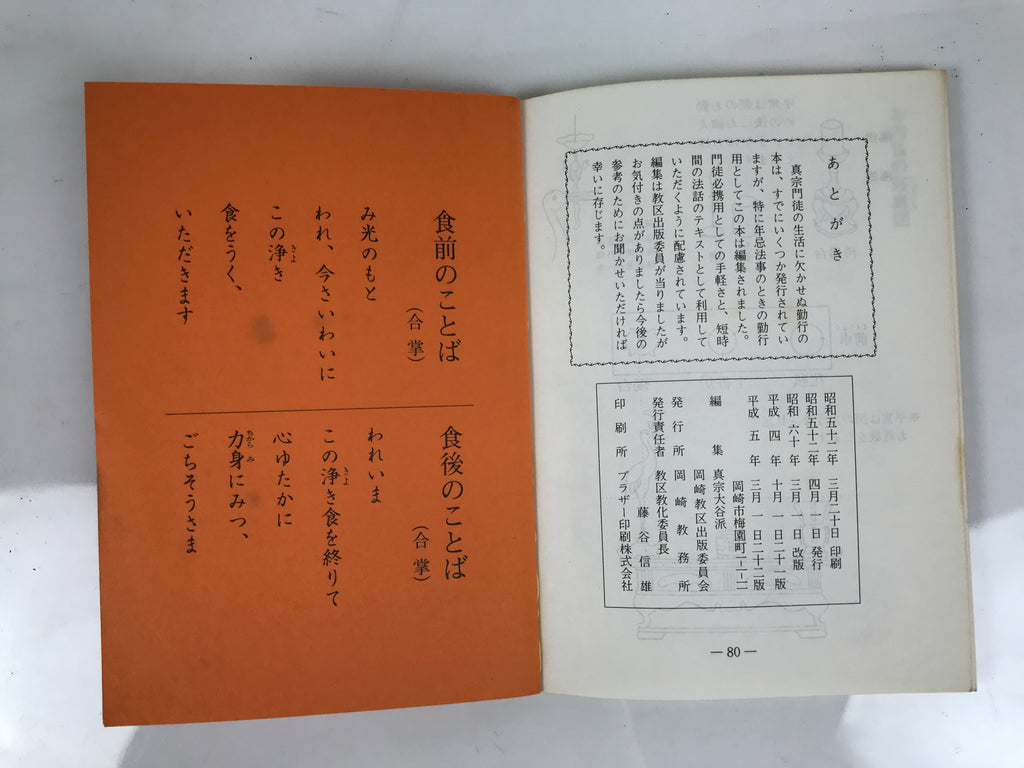 あとがき
真宗門徒の生活に欠かせぬ勤行の
本は、すでにいくつか発行されてい
ますが、特に年忌法事のときの勤行
用としてこの本は編集されました。
門徒必携用としての手軽さと、短時
間の法話のテキストとして利用して
いただくように配慮されています。
編集は教区出版委員が当りましたが
お気付きの点がありましたら今後の
参考のためにお聞かせいただければ
幸いに存じます。
昭和五十二年 三月二十日 印刷
昭和五十二年 四月一日 発行
昭和六十年 三月一日 改版
平成四年 十月一日 二十一版
平成五年 三月一日 二十二版
岡崎市梅園町一−一−二
編集 真宗大谷派
岡崎教区出版委員会
発行所 岡崎教務所
発行責任者 教区教化委員長
藤谷信雄
印刷所 ブラザー印刷株式会社
— 80 —
食前のことば
（合掌）
み光のもと
われ、今さいわいに
この浄き
きよ
食をうく、
いただきます
食後のことば
（合掌）
われいま
この浄き食を終りて
きよ
心ゆたかに
力身にみつ、
ちから み
ごちそうさま